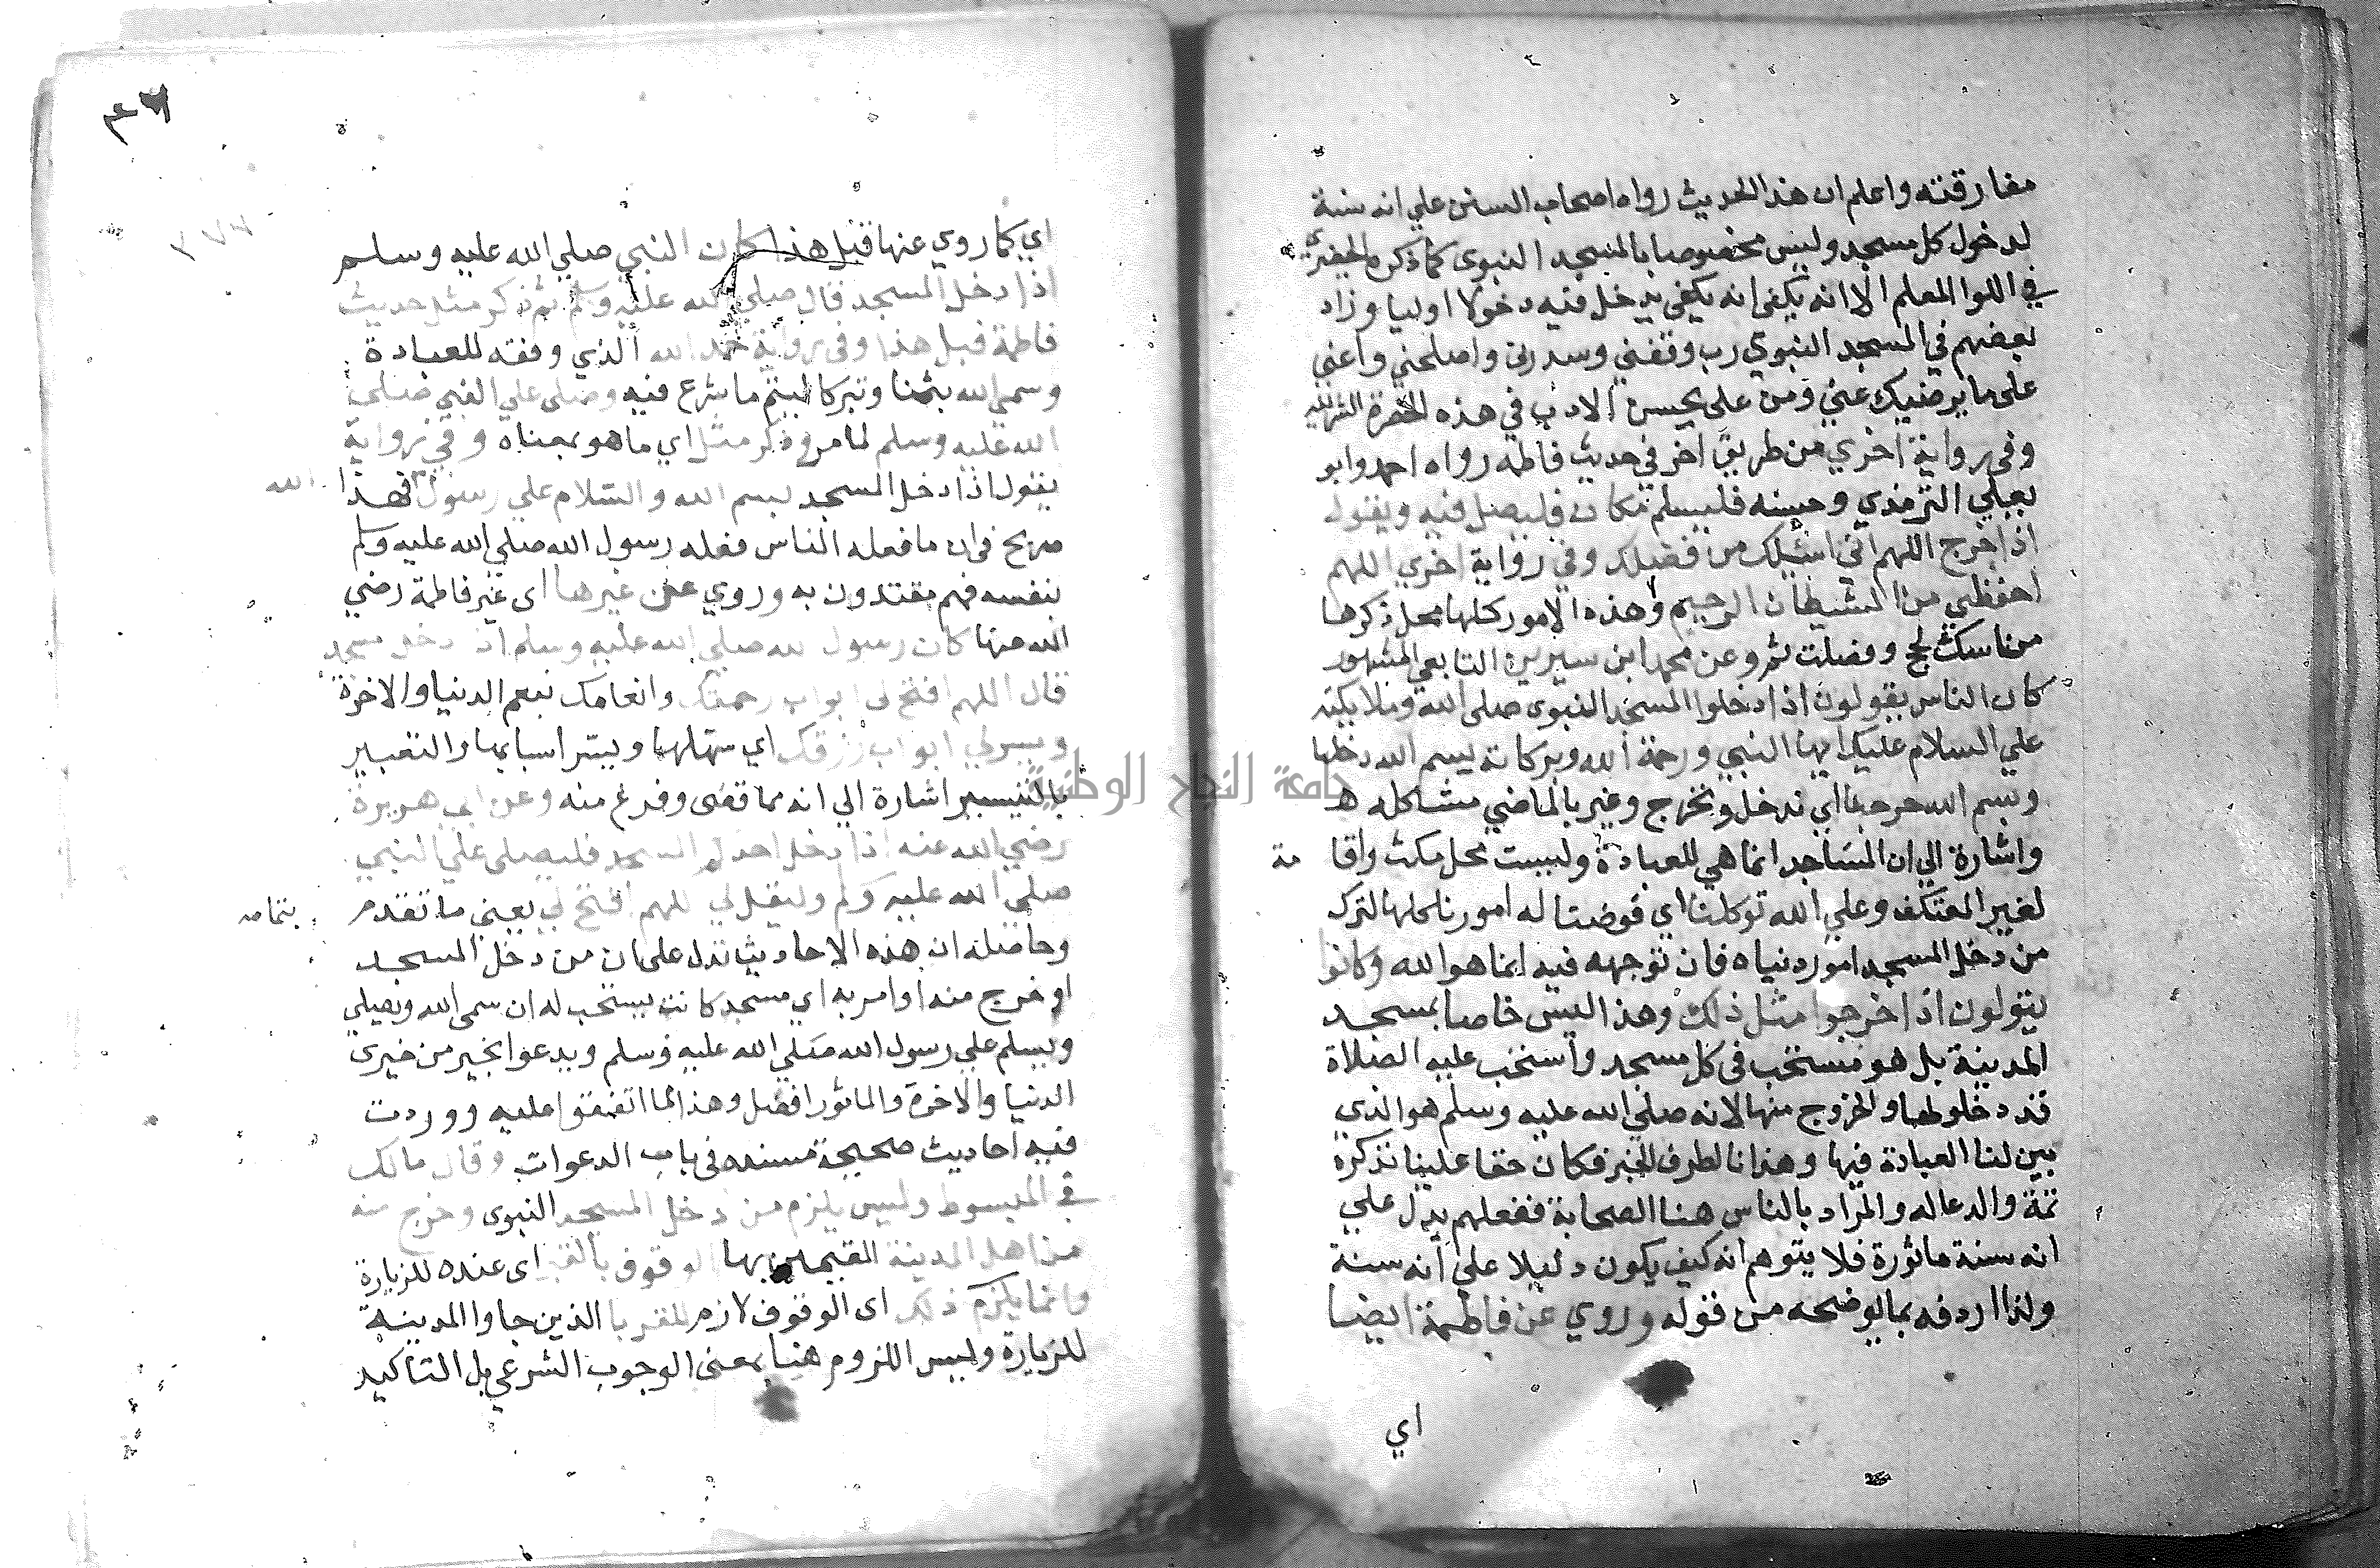 مفارقته واعلم ان هذا الحديث رواه اصحاب السنن علي انه سنة
لدخول كل مسجد وليس مخصوصا بالمسجد النبوى كما ذكره الخيضري
في اللوا المعلم الا انه يكفى انه يكفى يدخل فيه دخولا اوليا وزاد
بعضهم في المسجد النبوي رب وفقني وسددني واصلحني واعني
على ما يرضيك عني ومن علي بحسن الادب في هذه الحضرة الشريفة
وفي رواية اخري من طريق اخر في حديث فاطمه رواه احمد وابو
يعلي الترمذي وحسنه فليسلم مكان فليصل فيه ويقول
اذا خرج اللهم اني اسئلك من فضلك وفي رواية اخري اللهم
احفظني من الشيطان الرجيم وهذه الامور كلها محل ذكرها
مناسك الحج وفصلت ثم وعن محمد ابن سيرين التابعي المشهور
كان الناس يقولون اذا دخلوا المسجد النبوى صلى الله وملايكته
علي السلام عليك ايها النبي ورحمة الله وبركاته بسم الله دخلنا
وبسم الله خرجنا اي ندخل ونخرج وعبر بالماضي مشاكله
واشارة الي ان المساجد انما هي للعبادة وليست محل مكث واقا مة
لغير المعتكف وعلي الله توكلنا اي فوضنا له امورنا كلها لترك
من دخل المسجد امور دنياه فان توجهه فيه انما هو الله وكانوا
يقولون اذا خرجوا مثل ذلك وهذا ليس خاصا بمسجد
المدينة بل هو مستحب في كل مسجد واستحب عليه الصلاة
عند دخولها والخروج منها لانه صلي الله عليه وسلم هو الذي
بين لنا العبادة فيها وهذا فكان حقا علينا تذكره
ثمة والدعا له والمراد بالناس هنا الصحابة ففعلهم يدل علي
انه سنة ماثورة فلا يتوهم انه كيف يكون دليلا علي انه سنة
ولذا اردفه بما يوضحه من قوله وروي عن فاطمة ايضا
اي
اي كما روي عنها قبل هذا كان النبي صلي الله عليه وسلم
اذا دخل المسجد قال صلي الله عليه وسلم ثم ذكر مثل حديث
فاطمة قبل هذا وفي رواية حمد الله الذي وفقه للعبادة
وسمي الله تيمنا وتبركا ليتم ما شرع فيه وصلى علي النبي صلي
الله عليه وسلم لما مر وذكر مثل اي ما هو بمعناه وفي رواية
يقول اذا دخل المسجد بسم الله والسلام علي رسول الله فهذا
صريح في ان ما فعله الناس فعله رسول الله صلي الله عليه وسلم
بنفسه فهم مقتدون به وروي عن غيرها اى غير فاطمة رضي
الله عنها كان رسول الله صلي الله عليه وسلم اذا دخل مسجد
قال اللهم افتح لى ابواب رحمتك وانعامك بنعم الدنيا والاخرة
ويسر لي ابواب رزقك اي سهلها ويسر اسبابها والتعبير
بالتيسير اشارة الي انه مما قضى وفرغ منه وعن ابي هريرة
رضي الله عنه اذا دخل احدكم المسجد فليصلى علي النبي
صلى الله عليه وسلم وليقل اللهم افتح لي يعني ما تقدم بتمامه
وحاصله ان هذه الاحاديث تدل على ان من دخل المسجد
او خرج منه او امر به اي مسجد كانت يستحب له ان سمى الله ويصلي
ويسلم علي رسول الله صلي الله عليه وسلم ويدعوا بخير من خيرى
الدنيا والاخرة والماثور افضل وهذا مما اتفقوا عليه ووردت
فيه احاديث صحيحة مسنده في باب الدعوات وقال مالك
في المبسوط وليس يلزم من دخل المسجد النبوى وخرج منه
من اهل المدينة المقيمين بها الوقوف بالقبر اى عنده للزيارة
وانما يلزم ذلك اى الوقوف لازم للغربا الذين جاوا المدينة
للزيارة وليس اللزوم هنا بمعنى الوجوب الشرعي بل التاكيد
جامعة النجاح الوطنية